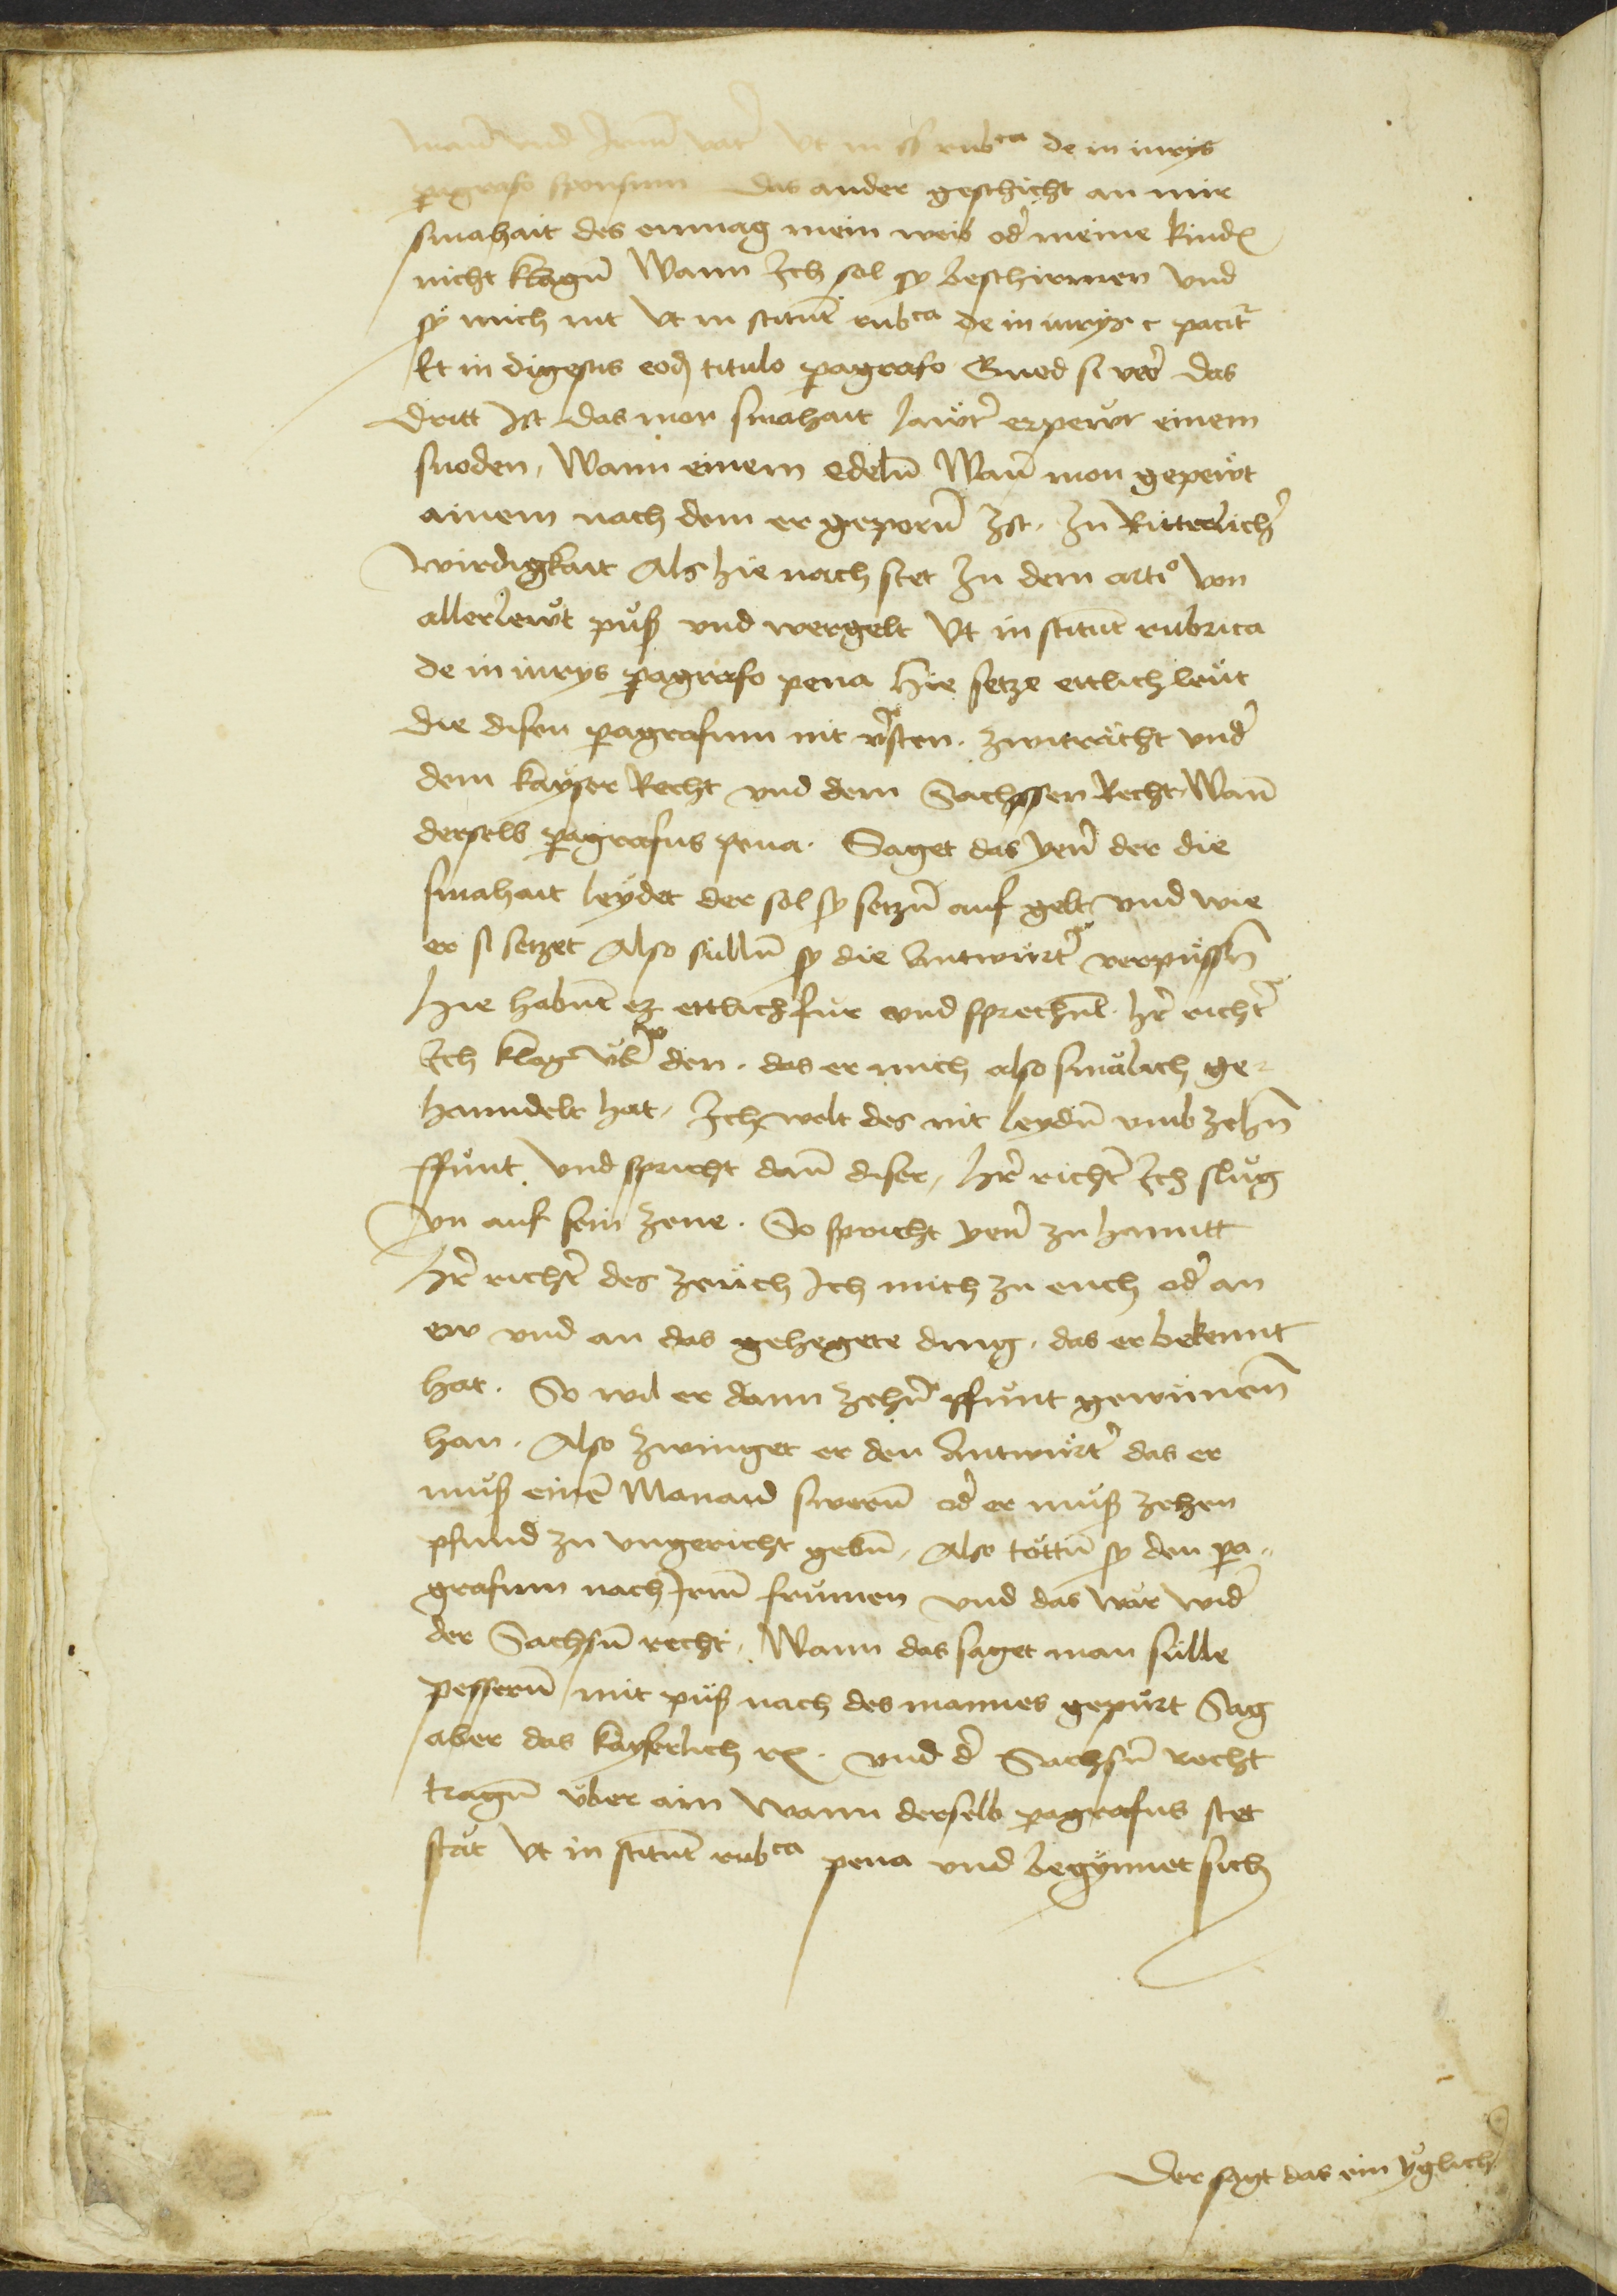 man̄ vnd Irm̄ vat᷑ Vt in ff rubca de in iurijs
pagrafo sponsum das ander geschicht an mir
smahait des enmag mein weib od᷑ meine kind᷑
nicht klagn̄ Wann Ich sol sy beschirmen vnd
sÿ mich nit Vt in stitut̄ rubca de in iurijs c pacit᷑
Et in digestis eod titulo pagrafo Quod si vero᷑ das
dritt Ist das man smahait hawt᷑ erpewt einem
snoden, Wann einem edeln̄ Wan̄ man gepewt
ainem nach dem er geporn̄ Ist, In Ritterlich᷑
wirdigkait Als hie nach stet In dem artio von
allerlewt pus̈ß vnd wergelt Vt in stitut̄ rubrica
de in iurijs pagrafo pena Hie setze ettlich leüt
die disen pagrafum nit v᷑sten. zwitrǎcht vnd᷑
dem kaÿser Recht vnd dem Sachssen Recht Wan̄
derselb pagrafus pena. Saget das yen̄ der die
smahait leÿdet der sol sy setzn̄ auf gelt vnd wie
er si setzet Also sülln̄ sy die Antwürt᷑ verpüssn̄
Hie habnt̄ ez ettlich für vnd sprechn̄t. H᷑r richt᷑
Ich klag üb᷑ den. das er mich also smälich ge-
hanndelt hat, Ich wolt des nit leydn̄ vmb zehn̄
pfunt. Vnd spricht dan̄ diser, H᷑r richt᷑ Ich slug
yn auf sein zene. So spricht yen̄ zu hanntt
H᷑r richt᷑ des zeüch Ich mich zu euch od᷑ an
ew vnd an das gehegete ding, das er bekennt
hat. So wil er dann zehn̄ pfunt gewünen̄
han. Also zwinget er den Antwürt᷑ das er
mus̈ß einē Manaid swern̄ od᷑ er müß zehen
pfund zu vngericht gebn̄, Also töttn̄ sy den pa-
grafum nach Irm̄ frumen vnd das wär wid᷑
der Sachsn̄ recht, Wann das saget man sülle
pessern̄ mit püß nach des mannes gepürt Sag
aber das kayserlich rx. vnd d᷑ Sachsn̄ recht
tragn̄ über ain Wann derselb pagrafus stet
stät Vt in stitut̄ rubca pena vnd begÿnnet sich
Der sagt das ein yglich᷑